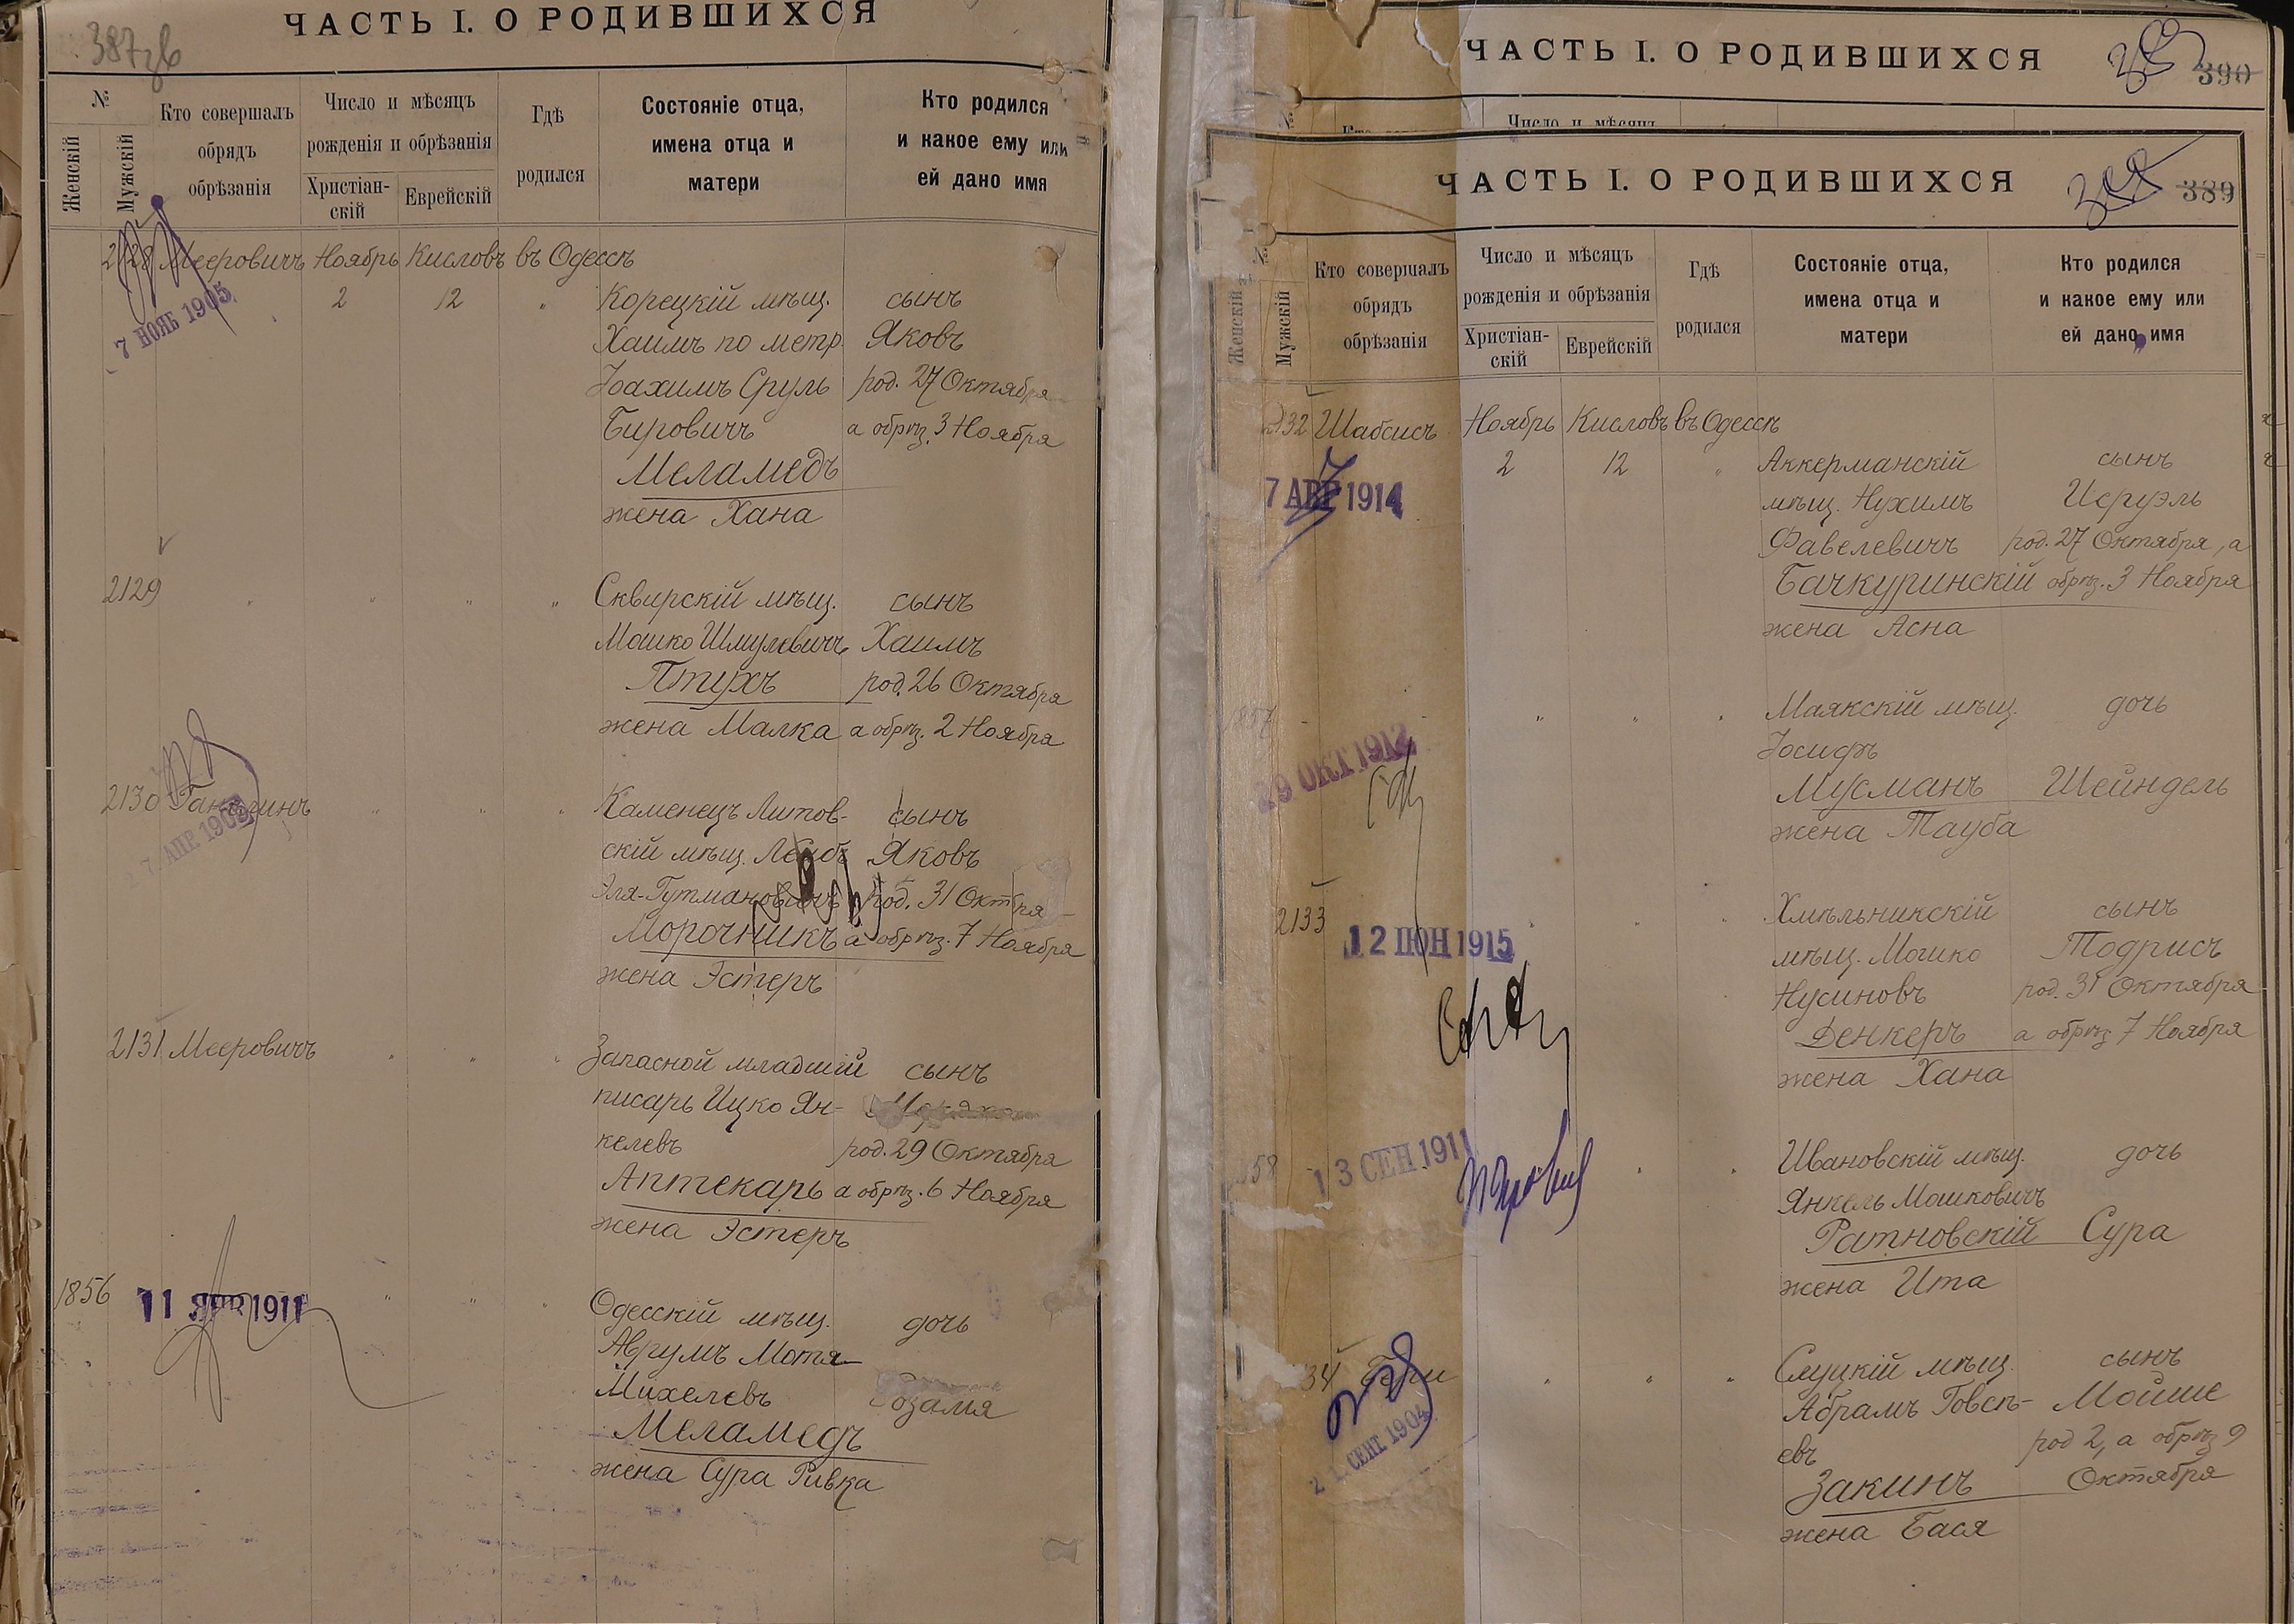 ЧАСТЬ I. О РОДИВШИХСЯ
№
Женскій
Мужскій
Кто совершалъ
обрядъ
обрѣзанія
Число и мѣсяцъ
рожденія и обрѣзанія
Христіан-
скій
Еврейскій
Гдѣ
родился
Состояніе отца,
имена отца и
матери
Кто родился
и какое ему или
ей дано имя
2128 Мееровичъ Ноябрь Кисловъ въ Одессѣ
2 12 " Корецкій мѣщ. сынъ
7 НОЯБ 1905
Хаимъ по метр. Яковъ
Іоахимъ Сруль род. 27 Октября
Бировичъ а обрѣз. 3 Ноября
Меламедъ
жена Хана
2129 " " " " Сквирскій мѣщ. сынъ
Мошко Шмулевичъ Хаимъ
Птухъ род. 26 Октября
жена Малка а обрѣз. 2 Ноября
2130 " " " Каменецъ Литов- сынъ
скій мѣщ. Лейбъ Яковъ
Эля-Гутмановичъ род. 31 Октября
Морочникъ а обрѣз. 7 Ноября
жена Эстеръ
2131 Мееровичъ " " " Запасной младшій сынъ
писарь Ицко Ян-
келевъ род. 29 Октября
Аптекарь а обрѣз. 6 Ноября
жена Эстеръ
1856 11 1911 " " " Одесскій мѣщ. дочь
Аврумъ Мотя
Михелевъ
Меламедъ
жена Сура Ривка
ЧАСТЬ I. О РОДИВШИХСЯ
390
Число и мѣсяцъ
ЧАСТЬ I. О РОДИВШИХСЯ
389
№
Женскій
Мужскій
Кто совершалъ
обрядъ
обрѣзанія
Число и мѣсяцъ
рожденія и обрѣзанія
Христіан-
скій
Еврейскій
Гдѣ
родился
Состояніе отца,
имена отца и
матери
Кто родился
и какое ему или
ей дано имя
2132 Шабсисъ Ноябрь Кисловъ въ Одессѣ
2 12 " Аккерманскій сынъ
7 АПР 1914
мѣщ. Нухимъ Исруэль
Фавелевичъ род. 27 Октября, а
Бачкуринскій обрѣз. 3 Ноября
жена Асна
1857 " " " Маякскій мѣщ. дочь
29 ОКТ 1912
Іосифъ
Мусманъ Шейндель
жена Тауба
2133 " " " Хмѣльникскій сынъ
12 ІЮН 1915
мѣщ. Мошко Тодрисъ
Нусиновъ род. 31 Октября
Денкеръ а обрѣз 7 Ноября
жена Хана
58 " " Ивановскій мѣщ. дочь
13 СЕН 1911
Янкель Мошковичъ
Ратновскій Сура
жена Ита
34 " " " Слуцкій мѣщ. сынъ
Абрамъ Говсѣ- Мойше
евъ род 2, а обрѣз 9
Закинъ Октября
21 СЕНТ 1904
жена Бася